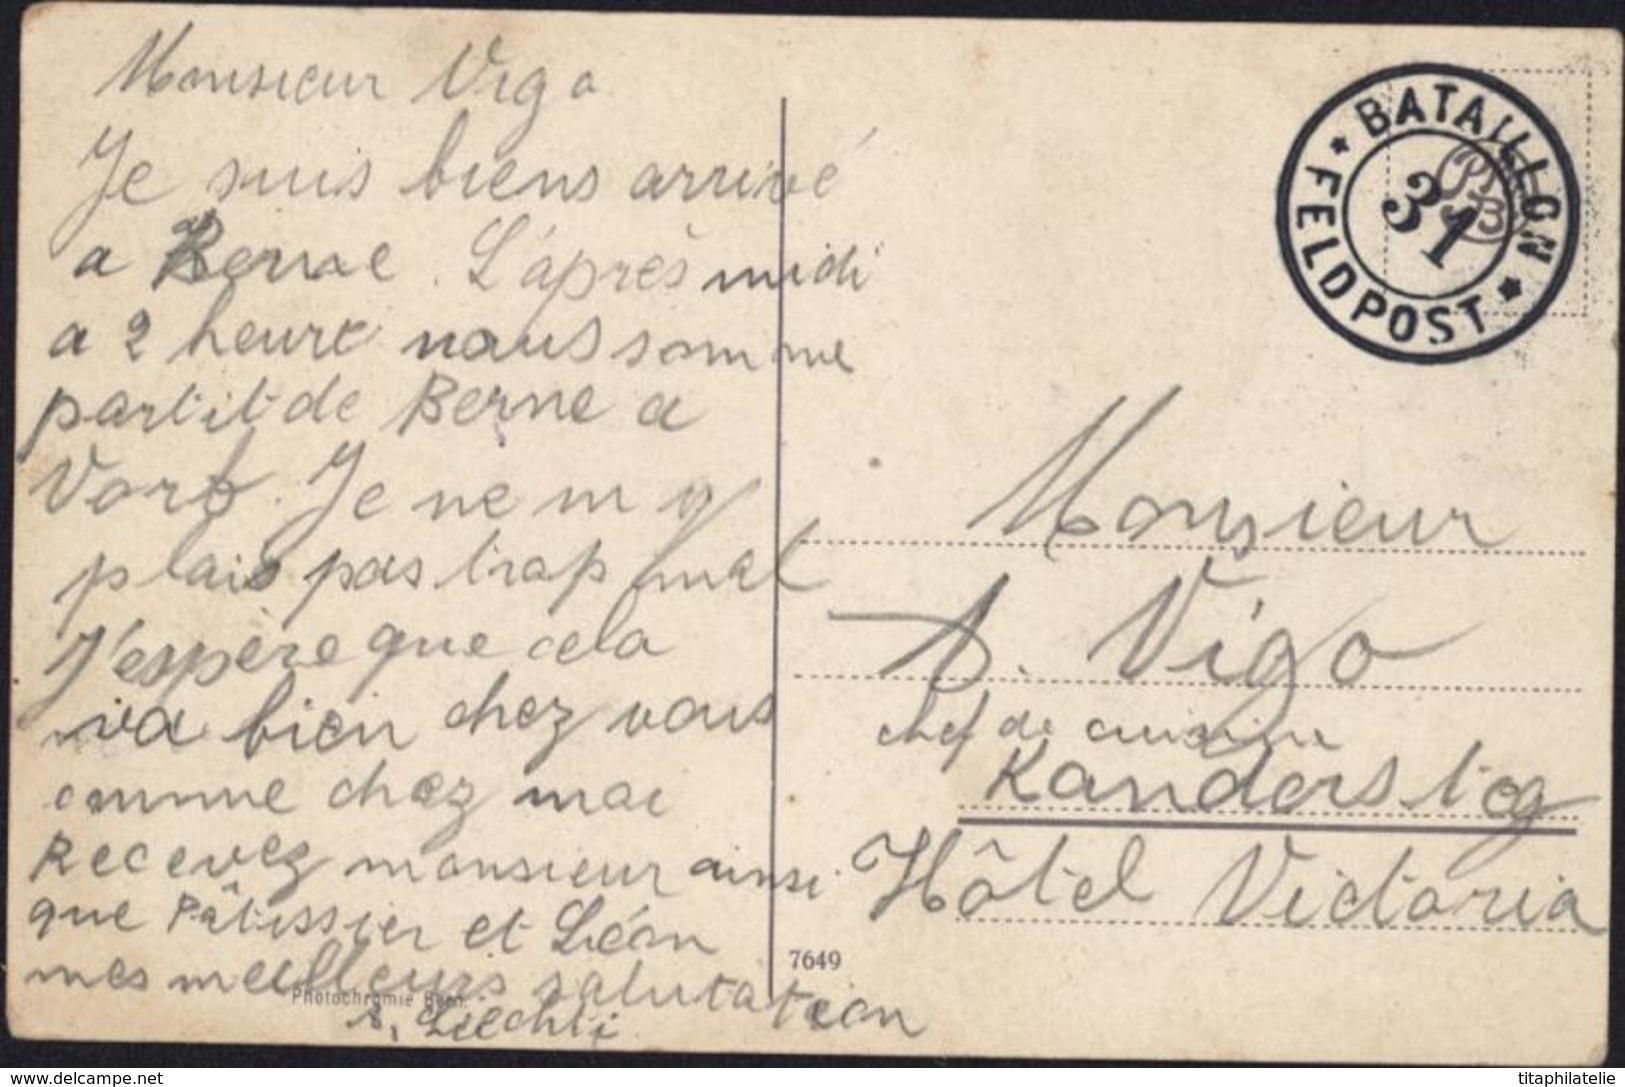 Monsieur Vigo
Je suis biens arrivé
a Berne. L'après midi
a 2 heure nous somme
partit de Berne a
Vorb. Je ne m y
plais pas trop mal
J'espère que cela
va bien chez vous
comme chez moi
Recevez monsieur ainsi
que Pâtissier et Léon
mes meilleurs salutation
Liechti
Photochromie Bern.
7649
BATAILLON
31
FELDPOST
PB
Monsieur
A. Vigo
chef de cuisine
Kandersteg
Hôtel Victoria
delcampe.net
titaphilatelie